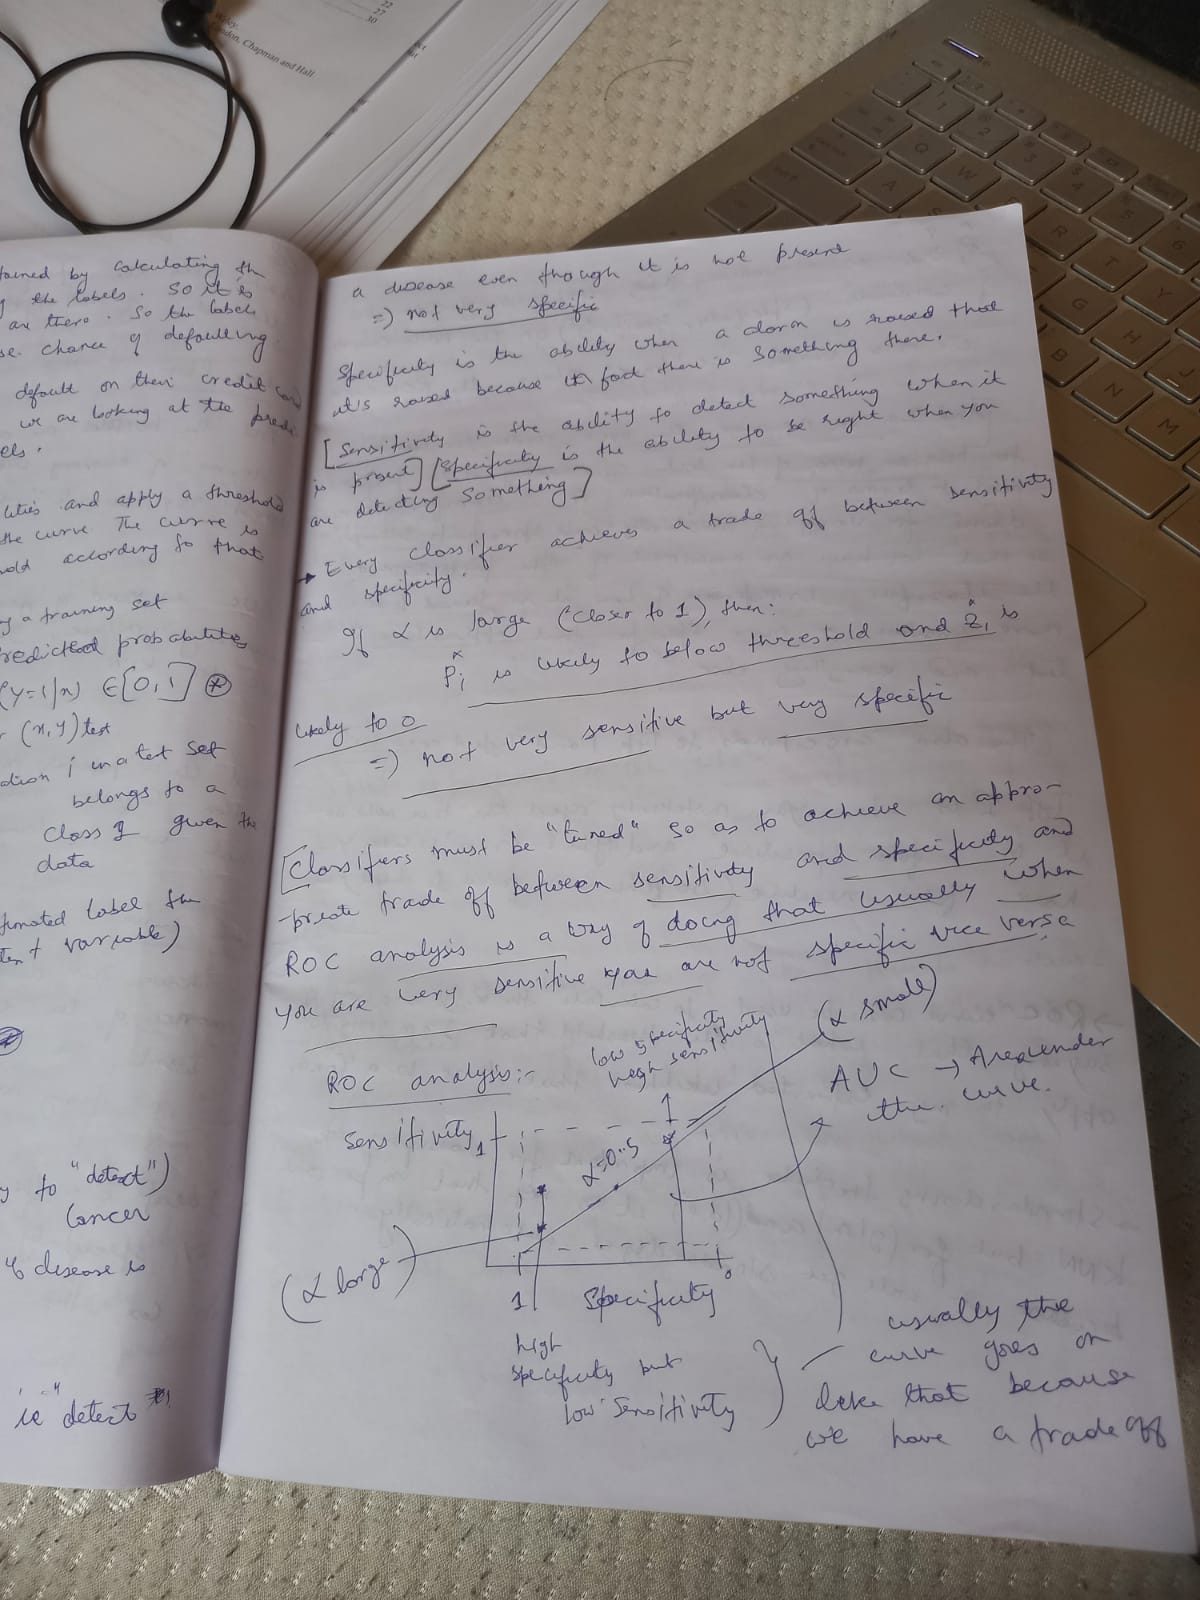 22
27
30
Wiley.
don, Chapman and Hall.
tained by calculating th
the labels. So it is
are there. So the labels
se. chance of defaulting
default on their credit card
we are looking at the predi
els.
lities and apply a threshold
the curve. The curve is
hold according to that
g a training set
redicted probabilities
(Y=1/x) ∈ [0,1] *
(x,y) test
i in a test set
belongs to a
class 1 given the
data
timated label the
variable)
y to "detect")
Cancer
disease is
ie "detect"
a disease even though it is not present
=) not very specific
Specificity is the ability when a alarm is raised that
it's raised because in fact there is something there.
[Sensitivity is the ability to detect something when it
is present] [Specificity is the ability to be right when you
are detecting something]
→ Every classifier achieves a trade off between sensitivity
and specificity.
If α is large (closer to 1), then:
p̂i is likely to below threeshold and ẑi is
likely to 0
=) not very sensitive but very specific
[Classifiers must be "tuned" so as to achieve an appro-
-priate trade off between sensitivity and specificity and
ROC analysis is a way of doing that usually when
you are very sensitive you are not specific vice versa
ROC analysis:-
low specificity
high sensitivity
(α small)
AUC → Area under
the curve.
Sensitivity
1
1
α=0.5
(α large)
1
Specificity
0
high
specificity but
low sensitivity
usually the
curve goes on
like that because
we have a trade off